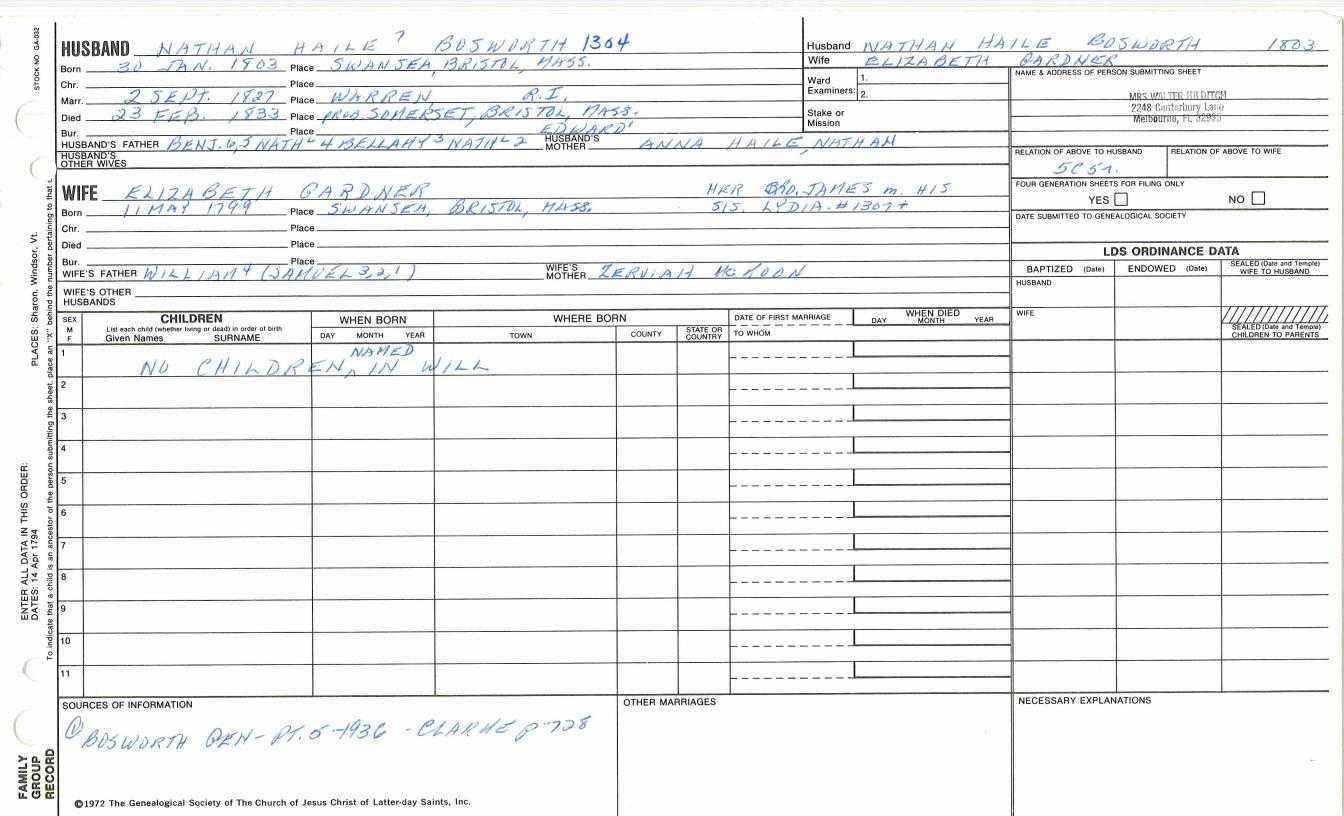 STOCK NO. GA-032
PLACES: Sharon, Windsor, Vt.
ENTER ALL DATA IN THIS ORDER:
DATES: 14 Apr 1794
To indicate that a child is an ancestor of the person submitting the sheet, place an "X" behind the number pertaining to that
FAMILY GROUP RECORD
HUSBAND NATHAN HAILE 7 BOSWORTH 1304
Born 30 JAN. 1803 Place SWANSEA, BRISTOL, MASS.
Chr. Place
Marr. 2 SEPT. 1827 Place WARREN, R.I.
Died 23 FEB. 1833 Place prob. SOMERSET, BRISTOL, MASS.
Bur. Place EDWARD1
HUSBAND'S FATHER BENJ. 6,5 NATHL 4 BELLAMY 3 NATHL 2 HUSBAND'S MOTHER ANNA HAILE, NATHAN
HUSBAND'S OTHER WIVES
WIFE ELIZABETH GARDNER HER BRO. JAMES m. HIS
Born 11 MAY 1799 Place SWANSEA, BRISTOL, MASS. SIS. LYDIA #1307+
Chr. Place
Died Place
Bur. Place
WIFE'S FATHER WILLIAM4 (SAMUEL 3,2,1) WIFE'S MOTHER ZERVIAH McKOON
WIFE'S OTHER HUSBANDS
Husband NATHAN HAILE BOSWORTH 1803
Wife ELIZABETH GARDNER
Ward Examiners: 1.
2.
Stake or Mission
NAME & ADDRESS OF PERSON SUBMITTING SHEET
MRS WALTER HILDITCH
2248 Canterbury Lane
Melbourne, FL 32935
RELATION OF ABOVE TO HUSBAND RELATION OF ABOVE TO WIFE
5C5r.
FOUR GENERATION SHEETS FOR FILING ONLY
YES NO
DATE SUBMITTED TO GENEALOGICAL SOCIETY
LDS ORDINANCE DATA
BAPTIZED (Date) ENDOWED (Date) SEALED (Date and Temple) WIFE TO HUSBAND
HUSBAND
WIFE
SEALED (Date and Temple) CHILDREN TO PARENTS
SEX M F CHILDREN WHEN BORN WHERE BORN DATE OF FIRST MARRIAGE WHEN DIED
List each child (whether living or dead) in order of birth
Given Names SURNAME DAY MONTH YEAR TOWN COUNTY STATE OR COUNTRY TO WHOM DAY MONTH YEAR
1 NO CHILDREN ^ NAMED IN WILL
2
3
4
5
6
7
8
9
10
11
SOURCES OF INFORMATION OTHER MARRIAGES NECESSARY EXPLANATIONS
① BOSWORTH GEN - PT. 5 - 1936 - CLARKE p 728
©1972 The Genealogical Society of The Church of Jesus Christ of Latter-day Saints, Inc.